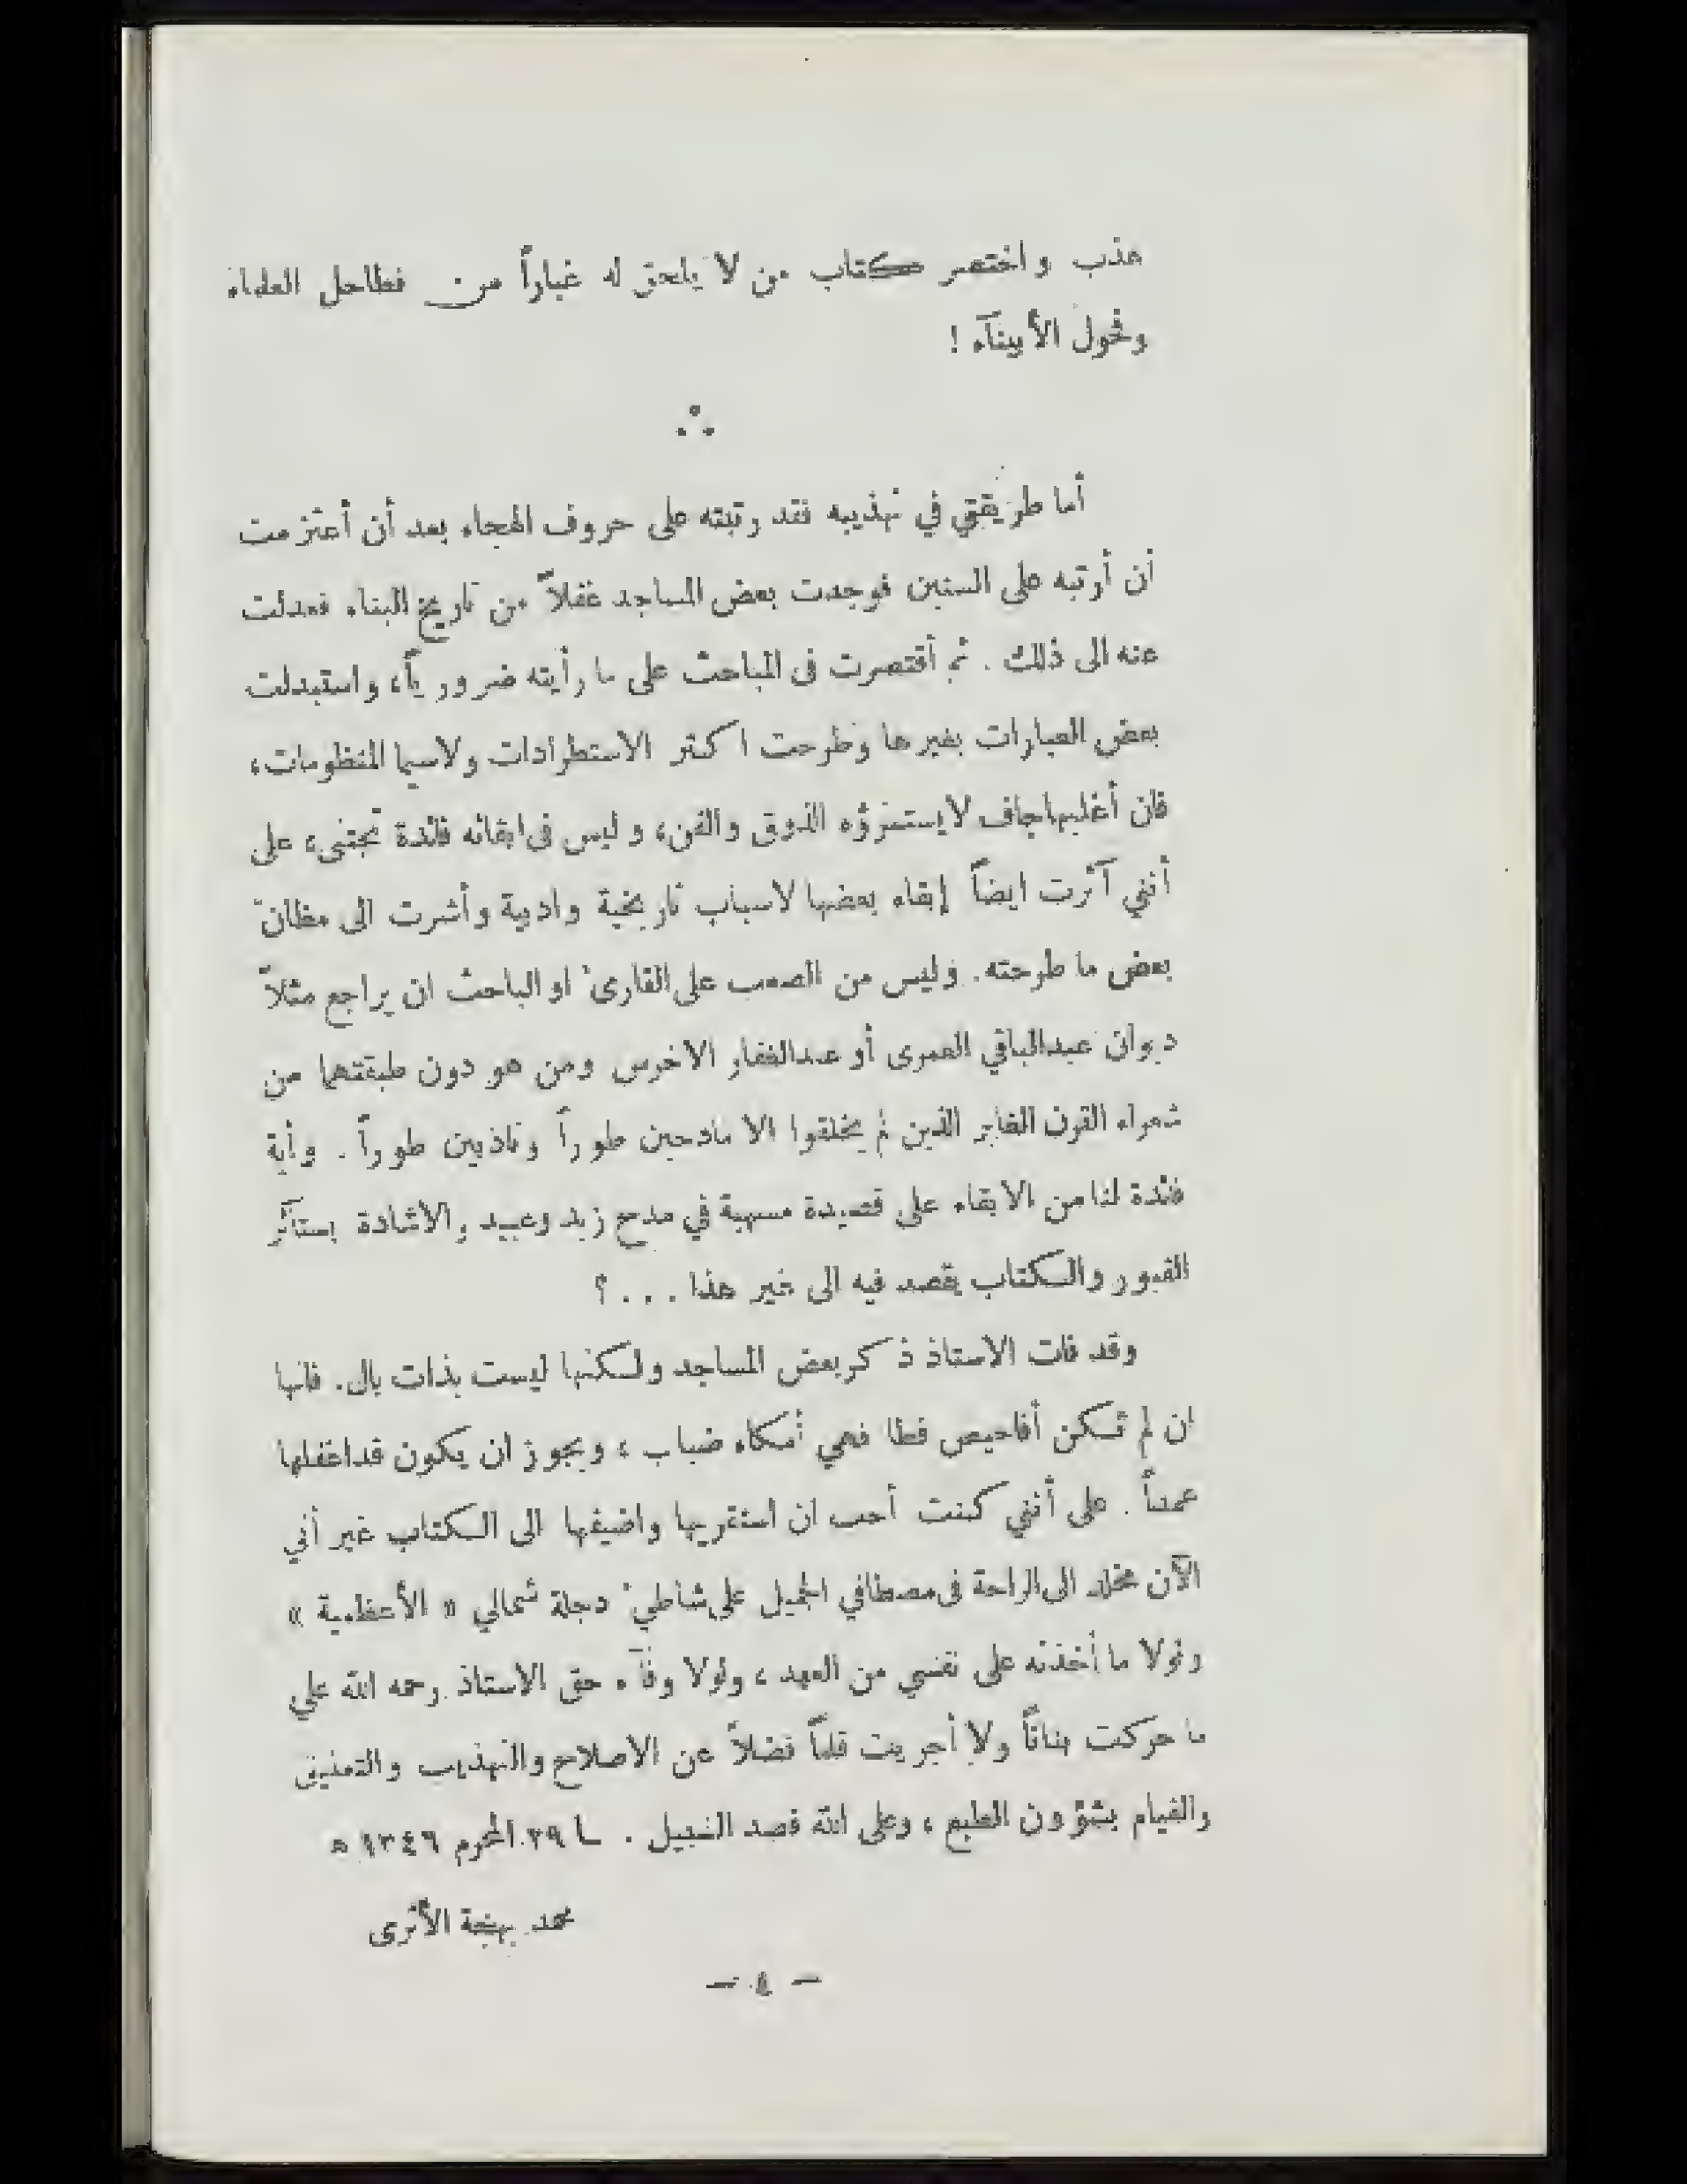 هذب واختصر كتاب من لا يلحق له غباراً من فطاحل العلماء
وفحول الأبيناء !
أما طريقتي في تهذيبه فقد رتبته على حروف الهجاء بعد أن أعتزمت
أن أرتبه على السنين فوجدت بعض المساجد غفلاً من تاريخ البناء فعدلت
عنه الى ذلك . ثم أقتصرت في المباحث على ما رأيته ضرورياً، واستبدلت
بعض العبارات بغيرها وطرحت اكثر الاستطرادات ولاسيما المنظومات،
فان أغلبها جاف لا يستمرؤه الذوق والفن، وليس في ابقائه فائدة تجتنى، على
أنني آثرت ايضاً إبقاء بعضها لاسباب تاريخية وادبية وأشرت الى مظانّ
بعض ما طرحته. وليس من الصعب على القارىء او الباحث ان يراجع مثلاً
ديوان عبدالباقي العمرى أو عبدالغفار الاخرس ومن هو دون طبقتهما من
شعراء القرن الغابر الذين لم يخلقوا الا مادحين طوراً ونادبين طوراً . وأية
فائدة لنا من الابقاء على قصيدة مسهبة في مدح زيد وعبيد والاشادة بستائر
القبور والكتاب يقصد فيه الى غير هذا . . . ؟
وقد فات الاستاذ ذكر بعض المساجد ولكنها ليست بذات بال. فانها
ان لم تكن أفاحيص قطا فهي أمكاء ضباب ، ويجوز ان يكون قد اغفلها
عمداً . على أنني كنت أحب ان استقريها واضيفها الى الكتاب غير أني
الآن مخلد الى الراحة في مصطافي الجميل على شاطيء دجلة شمالي « الأعظمية »
ولولا ما أخذته على نفسي من العهد ، ولولا وفاء حق الاستاذ رحمه الله علي
ما حركت بناناً ولا أجريت قلماً فضلاً عن الاصلاح والتهذيب والتعليق
والقيام بشؤون الطبع ، وعلى الله قصد السبيل . ٢٩ المحرم ١٣٤٦ ه
محمد بهجة الأثرى
— ٤ —